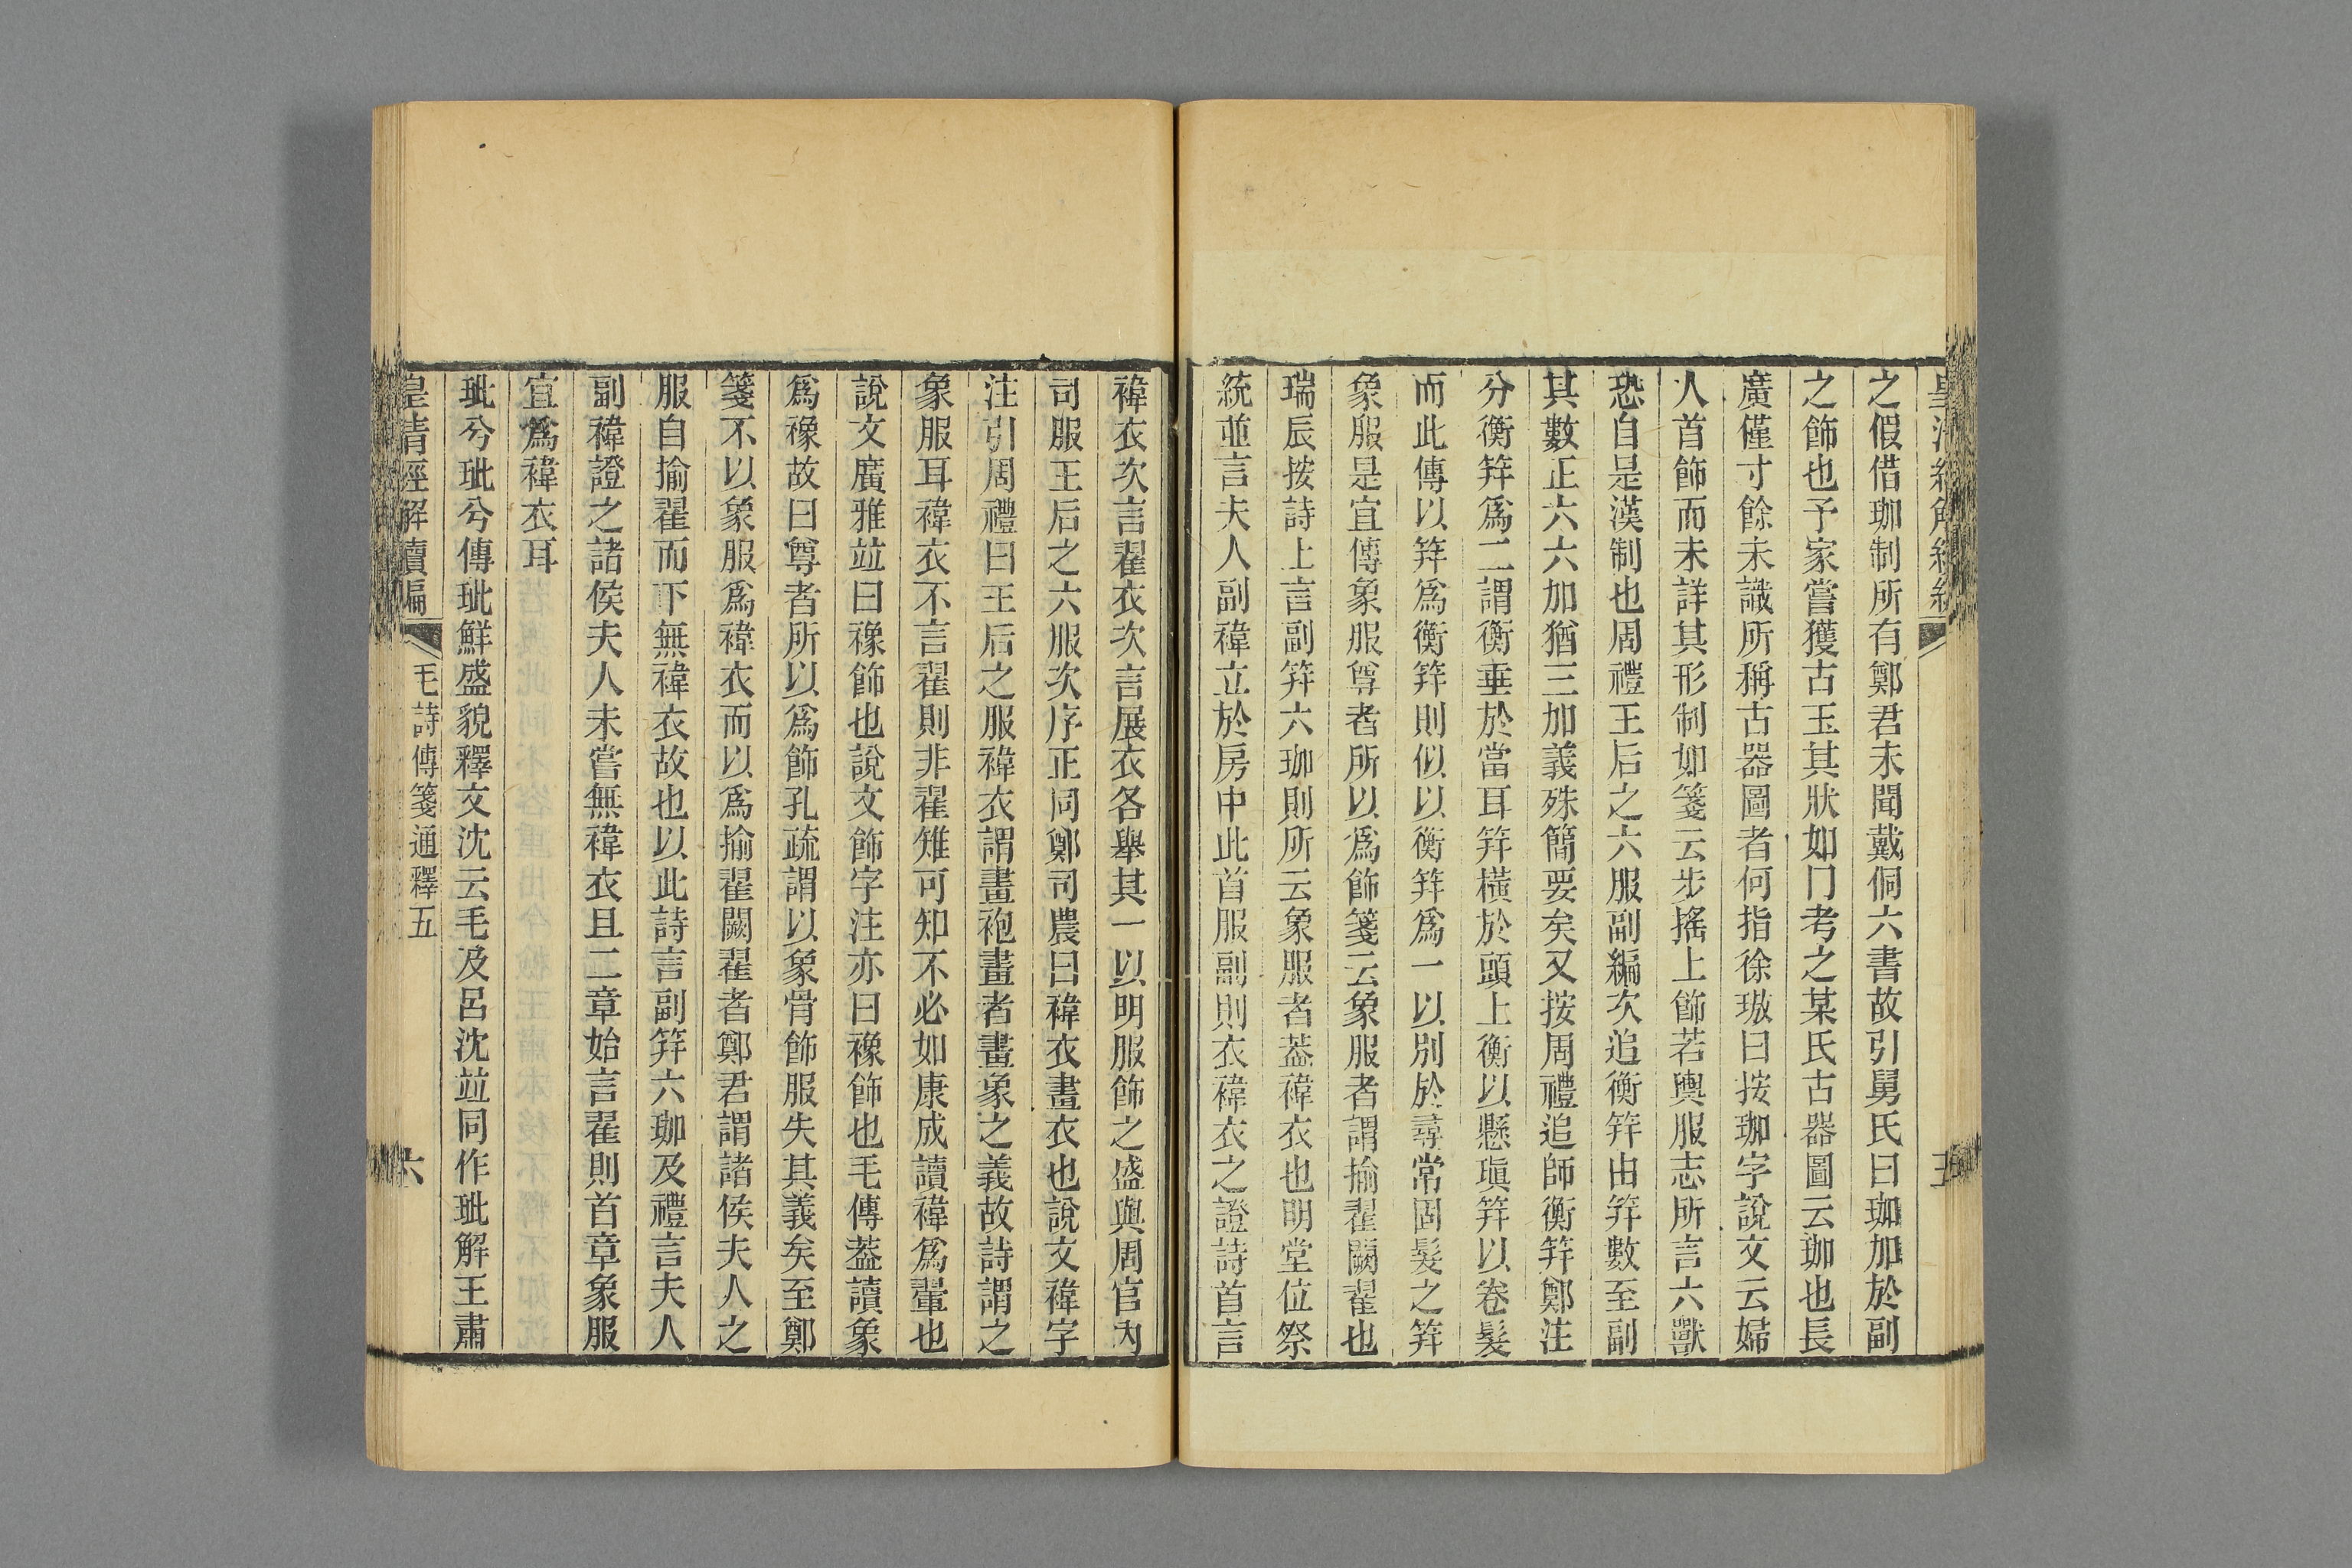 之假借珈制所有鄭君未聞戴侗六書故引舅氏曰珈加於副
之飾也予家嘗獲古玉其狀如冂考之某氏古器圖云珈也長
廣僅寸餘未識所稱古器圖者何指徐璈曰按珈字說文云婦
人首飾而未詳其形制如箋云步搖上飾若輿服志所言六獸
恐自是漢制也周禮王后之六服副編次追衡笄由笄數至副
其數正六六加猶三加義殊簡要矣又按周禮追師衡笄鄭注
分衡笄爲二謂衡垂於當耳笄橫於頭上衡以懸瑱笄以卷髮
而此傳以笄爲衡笄則似以衡笄爲一以別於尋常固髮之笄
象服是宜傳象服尊者所以爲飾箋云象服者謂揄翟闕翟也
瑞辰按詩上言副笄六珈則所云象服者葢褘衣也明堂位祭
統並言夫人副褘立於房中此首服副則衣褘衣之證詩首言
褘衣次言翟衣次言展衣各舉其一以明服飾之盛與周官內
司服王后之六服次序正同鄭司農曰褘衣畫衣也說文褘字
注引周禮曰王后之服褘衣謂畫袍畫者畫象之義故詩謂之
象服耳褘衣不言翟則非翟雉可知不必如康成讀褘爲翬也
說文廣雅竝曰襐飾也說文飾字注亦曰襐飾也毛傳葢讀象
爲襐故曰尊者所以爲飾孔疏謂以象骨飾服失其義矣至鄭
箋不以象服爲褘衣而以爲揄翟闕翟者鄭君謂諸侯夫人之
服自揄翟而下無褘衣故也以此詩言副笄六珈及禮言夫人
副褘證之諸侯夫人未嘗無褘衣且二章始言翟則首章象服
宜爲褘衣耳
玼兮玼兮傳玼鮮盛貌釋文沈云毛及呂沈竝同作玼解王肅
皇清經解續編
毛詩傳箋通釋五
六